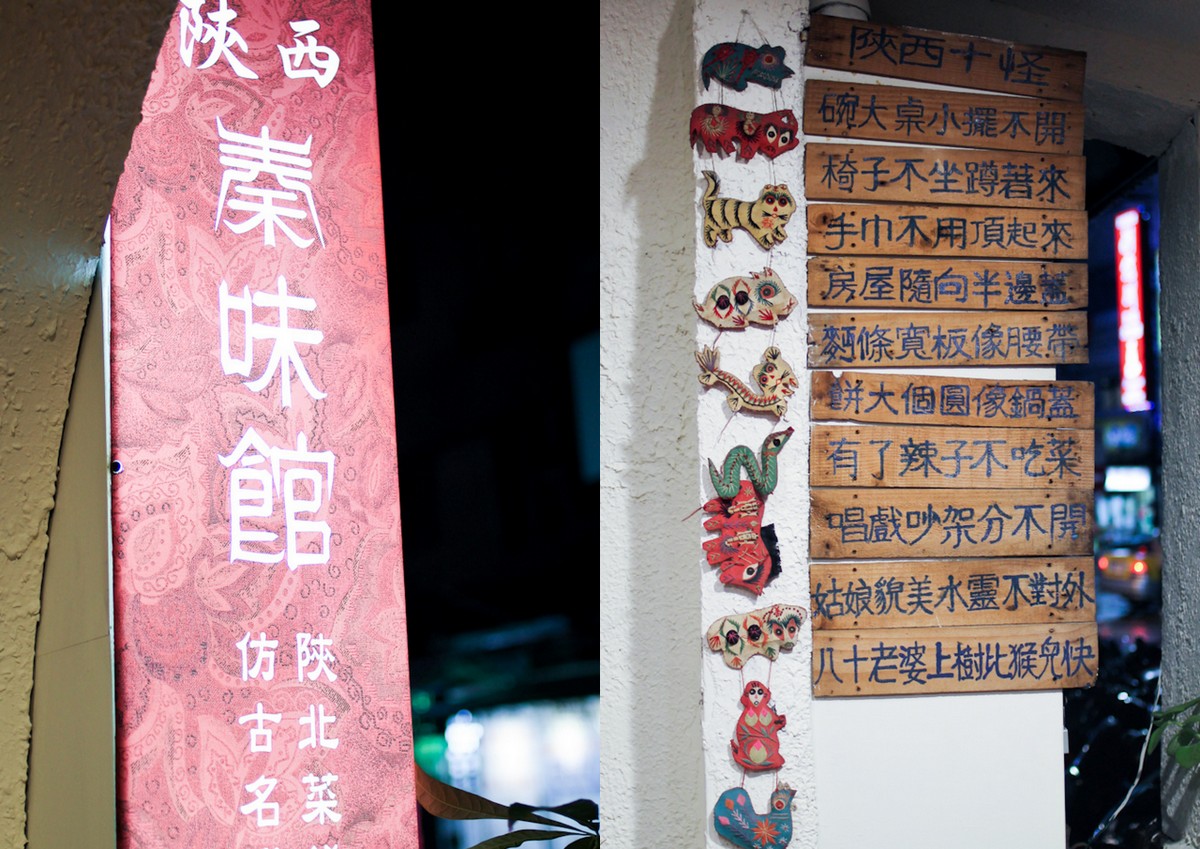 陝西
秦味館
陝北菜
仿古名
陝西十怪
碗大桌小擺不開
椅子不坐蹲著來
手巾不用頂起來
房屋隨向半邊蓋
麵條寬板像腰帶
餅大個圓像鍋蓋
有了辣子不吃菜
唱戲吵架分不開
姑娘貌美水靈不對外
八十老婆上樹比猴兒快